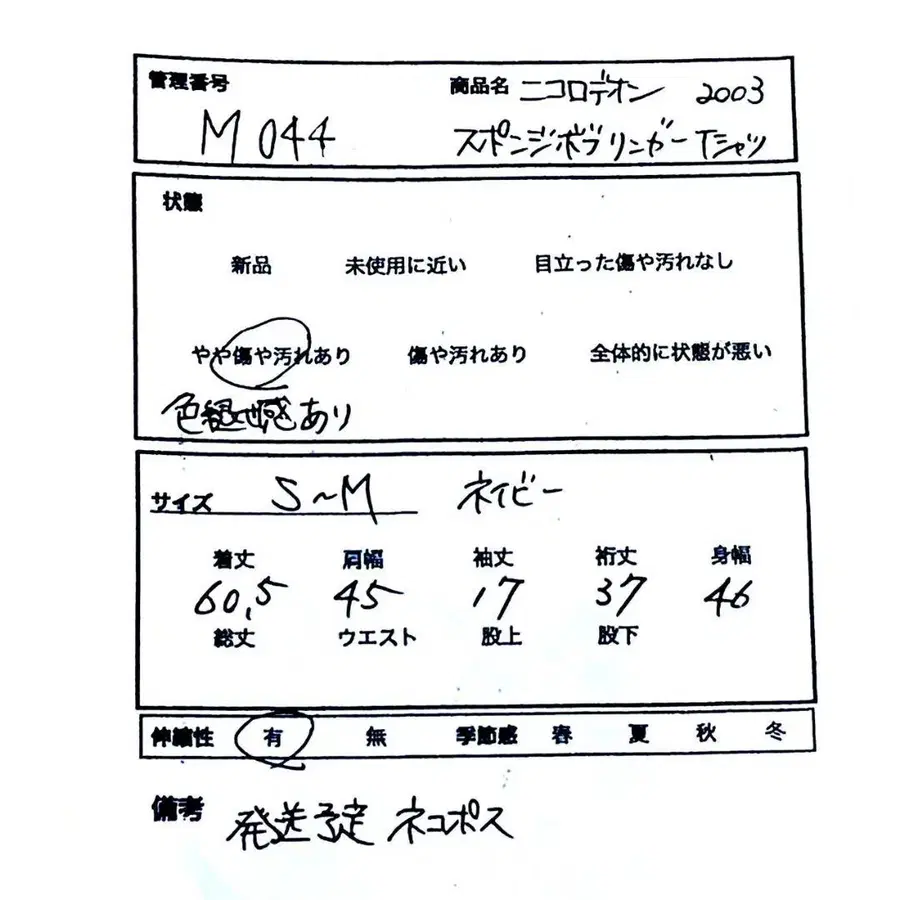 管理番号 商品名 ニコロデオン 2003
M 044 スポンジボブ リンガー Tシャツ
状態
新品 未使用に近い 目立った傷や汚れなし
やや傷や汚れあり 傷や汚れあり 全体的に状態が悪い
色褪せ感あり
サイズ S~M ネイビー
着丈 肩幅 袖丈 裄丈 身幅
60.5 45 17 37 46
総丈 ウエスト 股上 股下
伸縮性 有 無 季節感 春 夏 秋 冬
備考 発送予定 ネコポス